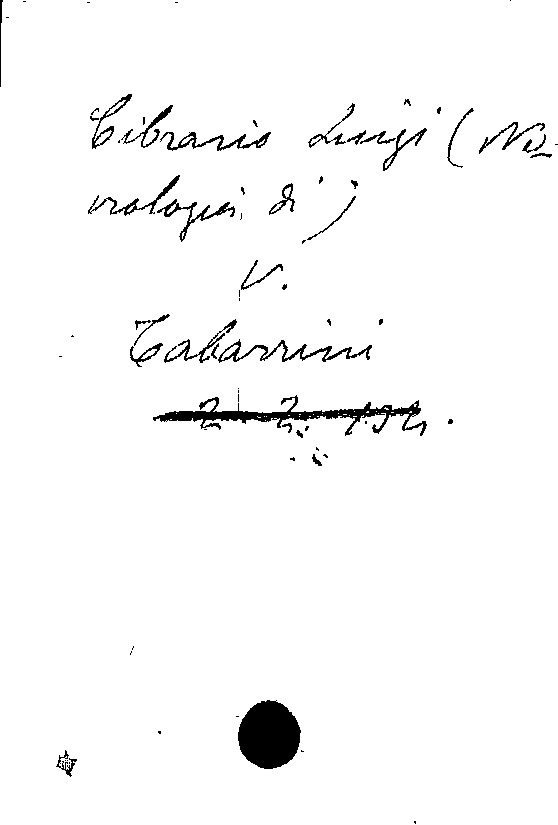 Cibrario Luigi (Ne-
crologia di)
V.
Tabarrini